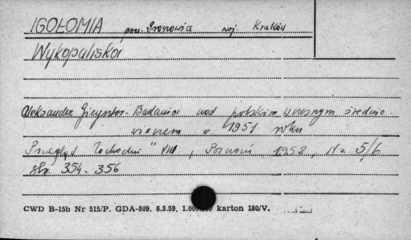 IGOŁOMIA pow. Proszowice woj. Kraków
Wykopaliska
Aleksander Gieysztor. Badania nad polskim wczesnym średnio-
wieczem w 1951 roku
Przegląd Zachodni" VIII, Poznań 1952, Nr 5/6
str. 354-356
CWD B-15b Nr 515/P. GDA-809. 6.3.59. karton 180/V.